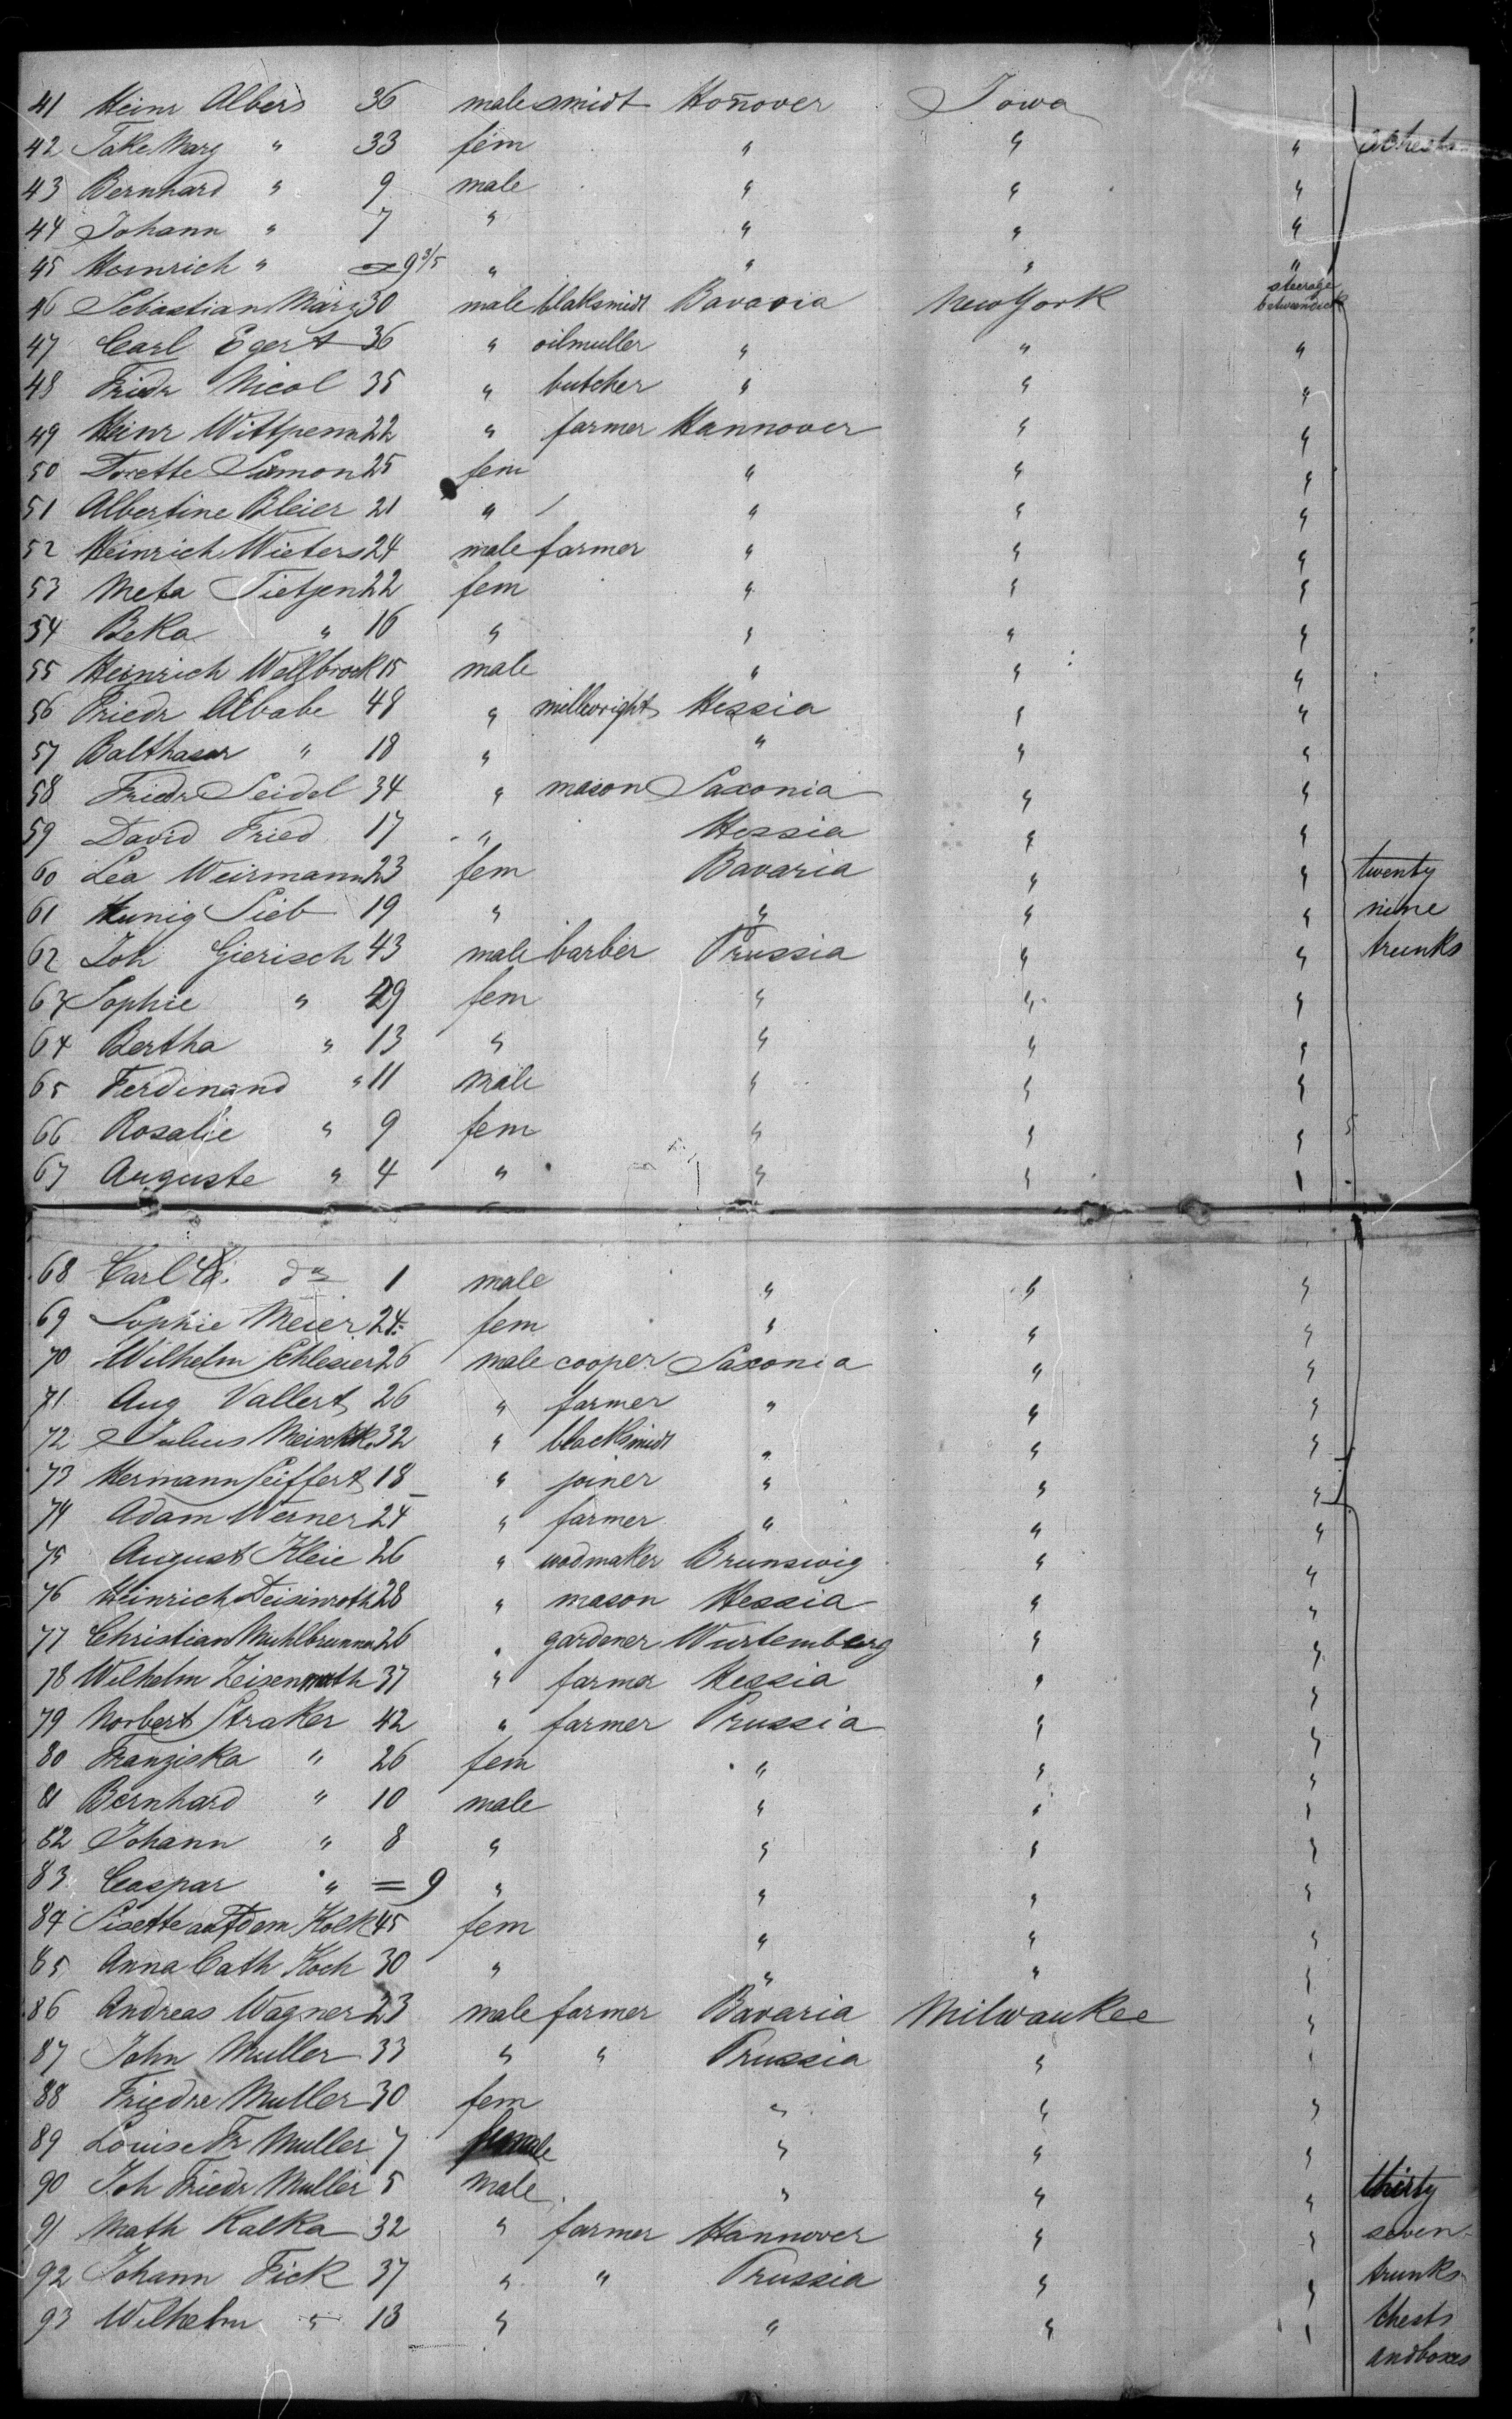 41 Heinr Albers 36 male smidt Honover Iowa
42 Take Marg " 33 fem " " "
43 Bernhard " 9 male " " "
44 Johann " 7 " " " "
45 Heinrich " 9 3/5 " " " "
46 Sebastian März 30 male blaksmidt Bavaria New York steerage betweendeck
47 Carl Egert 36 " oilmuller " " "
48 Friedr Nicol 35 " butcher " " "
49 Heinr Wittpenn 22 " farmer Hannover " "
50 Dorette Simon 25 fem " " "
51 Albertine Bleier 21 " / " " "
52 Heinrich Wieters 24 male farmer " " "
53 Meta Tietjen 22 fem " " "
54 Beka " 16 " " " "
55 Heinrich Wellbrock 15 male " " "
56 Friedr Albabe 48 " millwright Hessia " "
57 Balthasar " 18 " " " "
58 Friedr Seidel 34 " mason Saxonia " "
59 David Fried 17 " Hessia " "
60 Lea Weirmann 23 fem Bavaria " " twenty
61 Kunig Sieb 19 " " " " nine
62 Joh Gierisch 43 male barbier Prussia " " trunks
63 Sophie " 29 fem " " "
64 Bertha " 13 " " " "
65 Ferdinand " 11 male " " "
66 Rosalie " 9 fem " " "
67 Auguste " 4 " " " "
68 Carl do 1 male " " "
69 Sophie Meier 24 fem " " "
70 Wilhelm Schlesier 26 male cooper Saxonia " "
71 Aug Vallert 26 " farmer " " "
72 Julius 32 " blacksmidt " " "
73 Hermann Seiffert 18 " joiner " " "
74 Adam Werner 24 " farmer " " "
75 August Kleie 26 " wodmaker Brunswig " "
76 Heinrich Deisinroth 28 " mason Hessia " "
77 Christian Muhlbrunnn 26 " gardener Wurtemberg " "
78 Wilhelm Zeisenmuth 37 " farmer Hessia " "
79 Norbert Straker 42 " farmer Prussia " "
80 Franziska " 26 fem " " "
81 Bernhard " 10 male " " "
82 Johann " 8 " " " "
83 Caspar " = 9 " " " "
84 Lisette auf dem Kolk 45 fem " " "
85 Anna Cath Koch 30 " " " "
86 Andreas Wagner 23 male farmer Bavaria Milwaukee "
87 John Muller 33 " " Prussia " "
88 Friedre Muller 30 fem " " "
89 Louise Fr Muller 7 female " " "
90 Joh Friedr Muller 5 male " " " thirty
91 Math Kalka 32 " farmer Hannover " " seven
92 Johann Fick 37 " " Prussia " " trunks
93 Wilhelm " 13 " " " " chests
and boxes